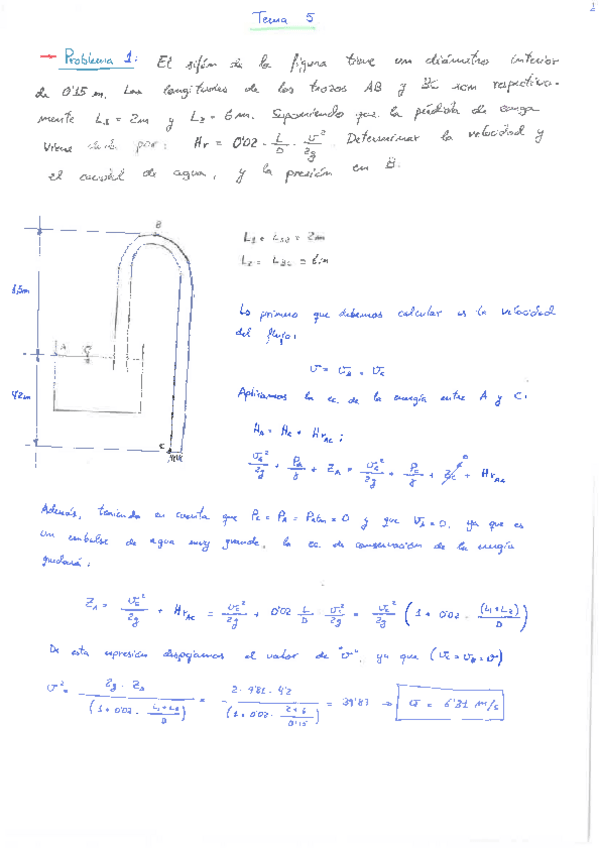 Tema 5
→ Problema 1: El sifón de la figura tiene un diámetro interior
de 0'15 m. Las longitudes de los trozos AB y BC son respectiva-
mente L₁ = 2m y L₂ = 6m. Suponiendo que la pérdida de carga
viene dada por: Hr = 0'02 · L/D · v²/2g. Determinar la velocidad y
el caudal de agua, y la presión en B.
B
1,5m
A
4,2m
C
L₁ = = 2m
L₂ = L_BC = 6m
Lo primero que debemos calcular es la velocidad
del flujo:
v = v_B = v_C
Aplicamos la ec. de la energía entre A y C.
H_A = H_C + Hr_AC ;
v_A²/2g + P_A/γ + Z_A = v_C²/2g + P_C/γ + Z_C + Hr_AC
0
Además, teniendo en cuenta que P_C = P_A = Patm = 0 y que v_A = 0, ya que es
un embalse de agua muy grande, la ec. de conservación de la energía
quedará:
Z_A = v_C²/2g + Hr_AC = v_C²/2g + 0'02 L/D v_C²/2g = v_C²/2g (1 + 0'02 · (L₁+L₂)/D)
De esta expresión despejamos el valor de "v", ya que (v_C = v_B = v)
v² = 2g · Z_A / (1 + 0'02 · (L₁+L₂)/D) = 2 · 9'81 · 4'2 / (1 + 0'02 · (2+6)/0'15) = 39'87 → v = 6'31 m/s